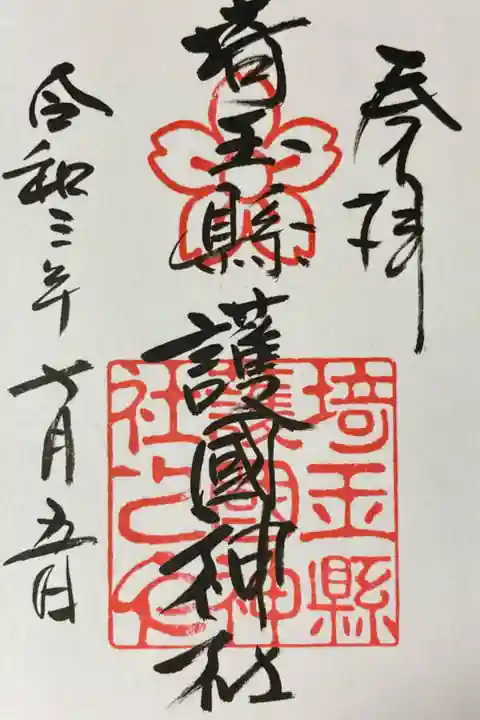 奉拝
埼玉縣護國神社
令和三年 七月五日
埼玉縣
護國神
社之印